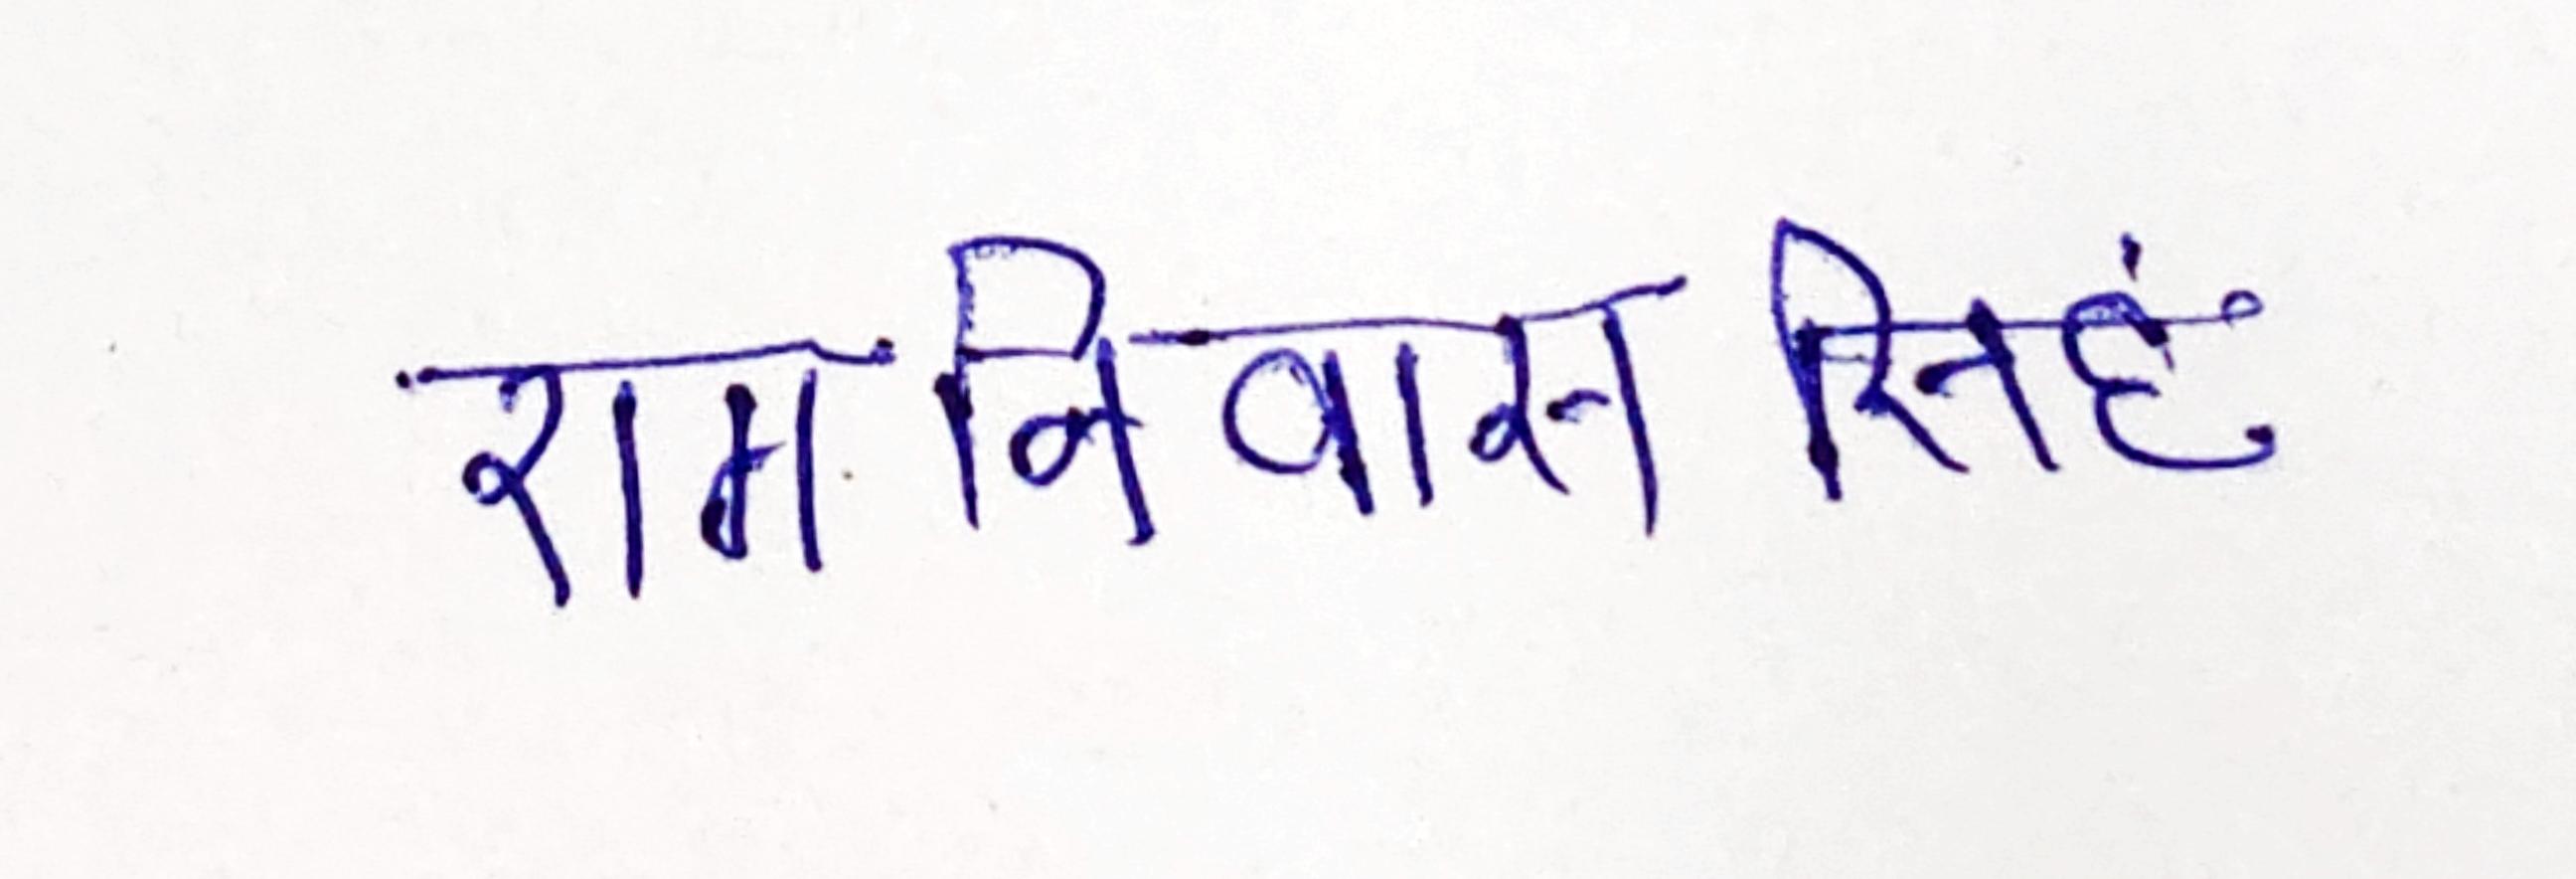 राम निवास सिहं